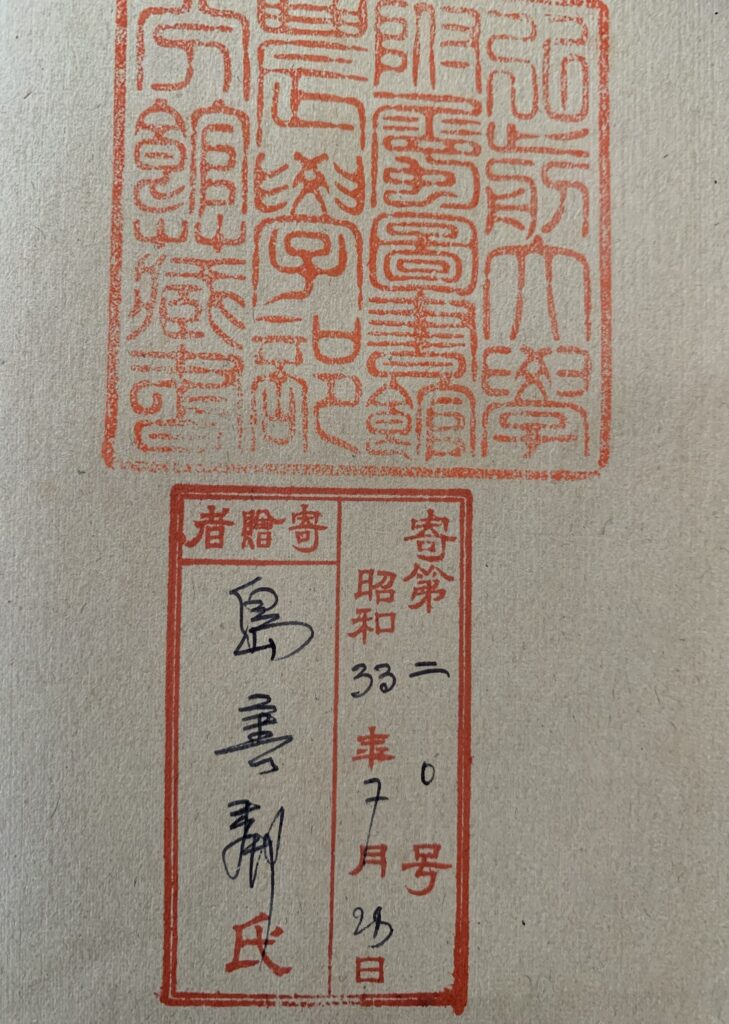 弘前大學
附屬圖書館
農學部
分館藏書
寄第二0号
昭和33年7月日
寄贈者
島善鄰氏